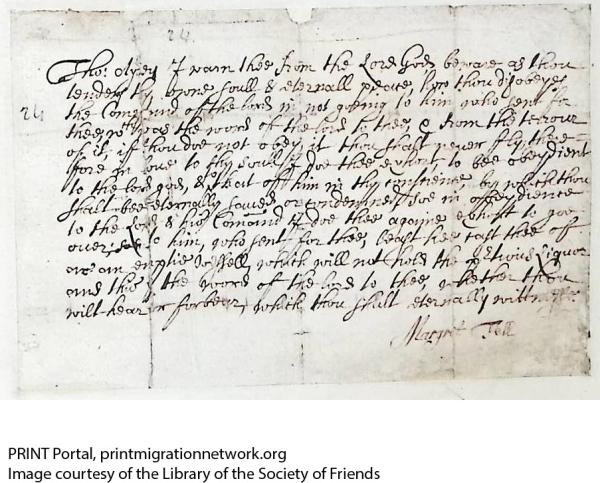 24
Tho: I warn thee from the Lord God, beware as thou
tenders thy owne soull & eternall peace, how thou disobeyes
the Comand of the lord, in not goeing to him who sent for
24
thee, was the word of the lord to thee, & from the terrour
of it, if thou doe not obey it thou shalt never fly, there
fore in love to thy soull I doe thee exhort to bee obeydient
to the lord god, & of him in thy conscience by which thou
shall bee eternally saved or condemned, soe in obeydience
to the Lord & his Comand I doe thee againe exhort to goe
over to him, who sent for thee, least hee cast thee off
as an emptie vessell, which will not hold the pretious liquor
and this is the word of the lord to thee, whether thou
will hear or forbear, which thou shall eternally wittnesse
Margret Fell
PRINT Portal, printmigrationnetwork.org
Image courtesy of the Library of the Society of Friends